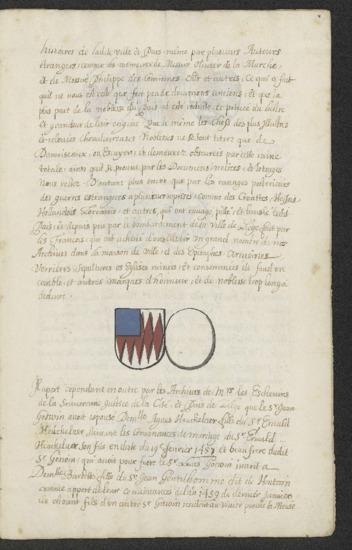 histoires de ladite ville et Pais même par plusieurs Auteurs
Etrangers, comme es memoires de Messire Olivier de la Marche,
et de Messire Philippe des Commines Chlr et autres, ce qui a fait
qu'il ne nous reste que fort peu de documens anciens, et que la
plus part de la noblesse du Pais at esté reduite et privée du lustre
et grandeur de leur origine. Que même les Chefs des plus Illustres
et relevées chevaleresses Noblesses ne se sont titrez que de
Damoiseaux, ou Escuyers, et demeurez obscurcis par cette ruine
totale; ainsi qu'il se prouve par les Documents, reliefs, et
D'autant plus encor que par les ravages posterieurs
des guerres estrangeres a plusieurs reprises comme des Croattes, Hessois
Hollandois Lorrains, et autres, qui ont ravagé, pillé, et
Pais, et depuis peu par le bombardement de la Ville de Liege fait par
les Francois, qui ont achevé un grand nombre de nos
Archives dans la maison de ville, et des Epitaphes, Armoiries,
Verrieres, sepultures es Eglises ruinées et consommées de fond en
comble, et autres marques d'honneur, et de noblesse trop longa
deduire.
Apert cependant en outre par les Archives de Mrs les Eschevins
de la Souveraine Justice de la Cité, et Pais de Liege que le Sr Jean
Goswin avoit epousé Demlle Agnes Huckelier fille du Sr Ernald
Huckelier, suivant les convenances de mariage du Sr Ernald
Huckelier son fils en date du 19 fevrier 1457 et beaufrere dudit
Sr Goswin, qui avoit pour frere le Sr Goswin marit a
Demlle fille du Sr Jean Gentilhomme dit de
comme appert de leur convenances du 1459 de dernier Janvier
de d'un autre Sr Goswin sur la Meuse